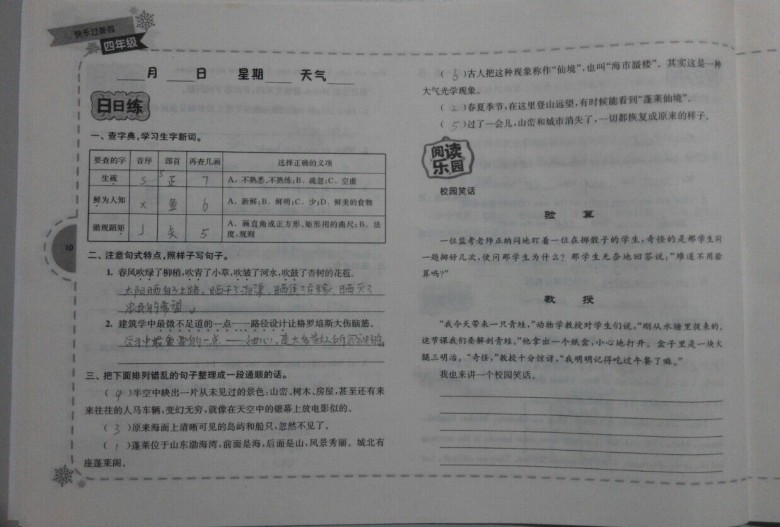 快乐过暑假
四年级
月 日 星期 天气
日日练
一、查字典,学习生字新词。
要查的字 音序 部首 再查几画 选择正确的义项
生疏 S 7 A、不熟悉、不熟练;B、疏忽;C、空虚
鲜为人知 X 鱼 6 A、新鲜;B、鲜明;C、少;D、鲜美的食物
循规蹈矩 J 矢 5 A、画直角或正方形、矩形用的曲尺;B、法
度、规则
二、注意句式特点,照样子写句子。
1. 春风吹绿了柳梢,吹青了小草,吹皱了河水,吹鼓了杏树的花苞。
2. 建筑学中最微不足道的一点——路径设计让格罗培斯大伤脑筋。
三、把下面排列错乱的句子整理成一段通顺的话。
( 4 )半空中映出一片从未见过的景色:山峦、树木、房屋,甚至还有来
来往往的人马车辆,变幻无穷,就像在天空中的银幕上放电影似的。
( 3 )原来海面上清晰可见的岛屿和船只,忽然不见了。
( 1 )蓬莱位于山东渤海湾,前面是海,后面是山,风景秀丽。城北有
座蓬莱阁。
10
( 6 )古人把这种现象称作“仙境”,也叫“海市蜃楼”。其实这是一种
大气光学现象。
( 2 )春夏季节,在这里登山远望,有时候能看到“蓬莱仙境”。
( 5 )过了一会儿,山峦和城市消失了,一切都恢复成原来的样子。
阅读
乐园
校园笑话
验 算
一位监考老师正纳闷地盯着一位在掷骰子的学生,奇怪的是那学生同
一题掷好几次,便问那学生为什么?那学生无奈地回答说:“难道不用验
算吗?”
教 授
“我今天带来一只青蛙,”动物学教授对学生们说,“刚从水塘里捉来的,
这节课我们要解剖青蛙。”他拿出一个纸盒,小心地打开。盒子里是一块火
腿三明治。“奇怪,”教授十分惊讶,“我明明记得吃过午餐了嘛。”
我也来讲一个校园笑话。